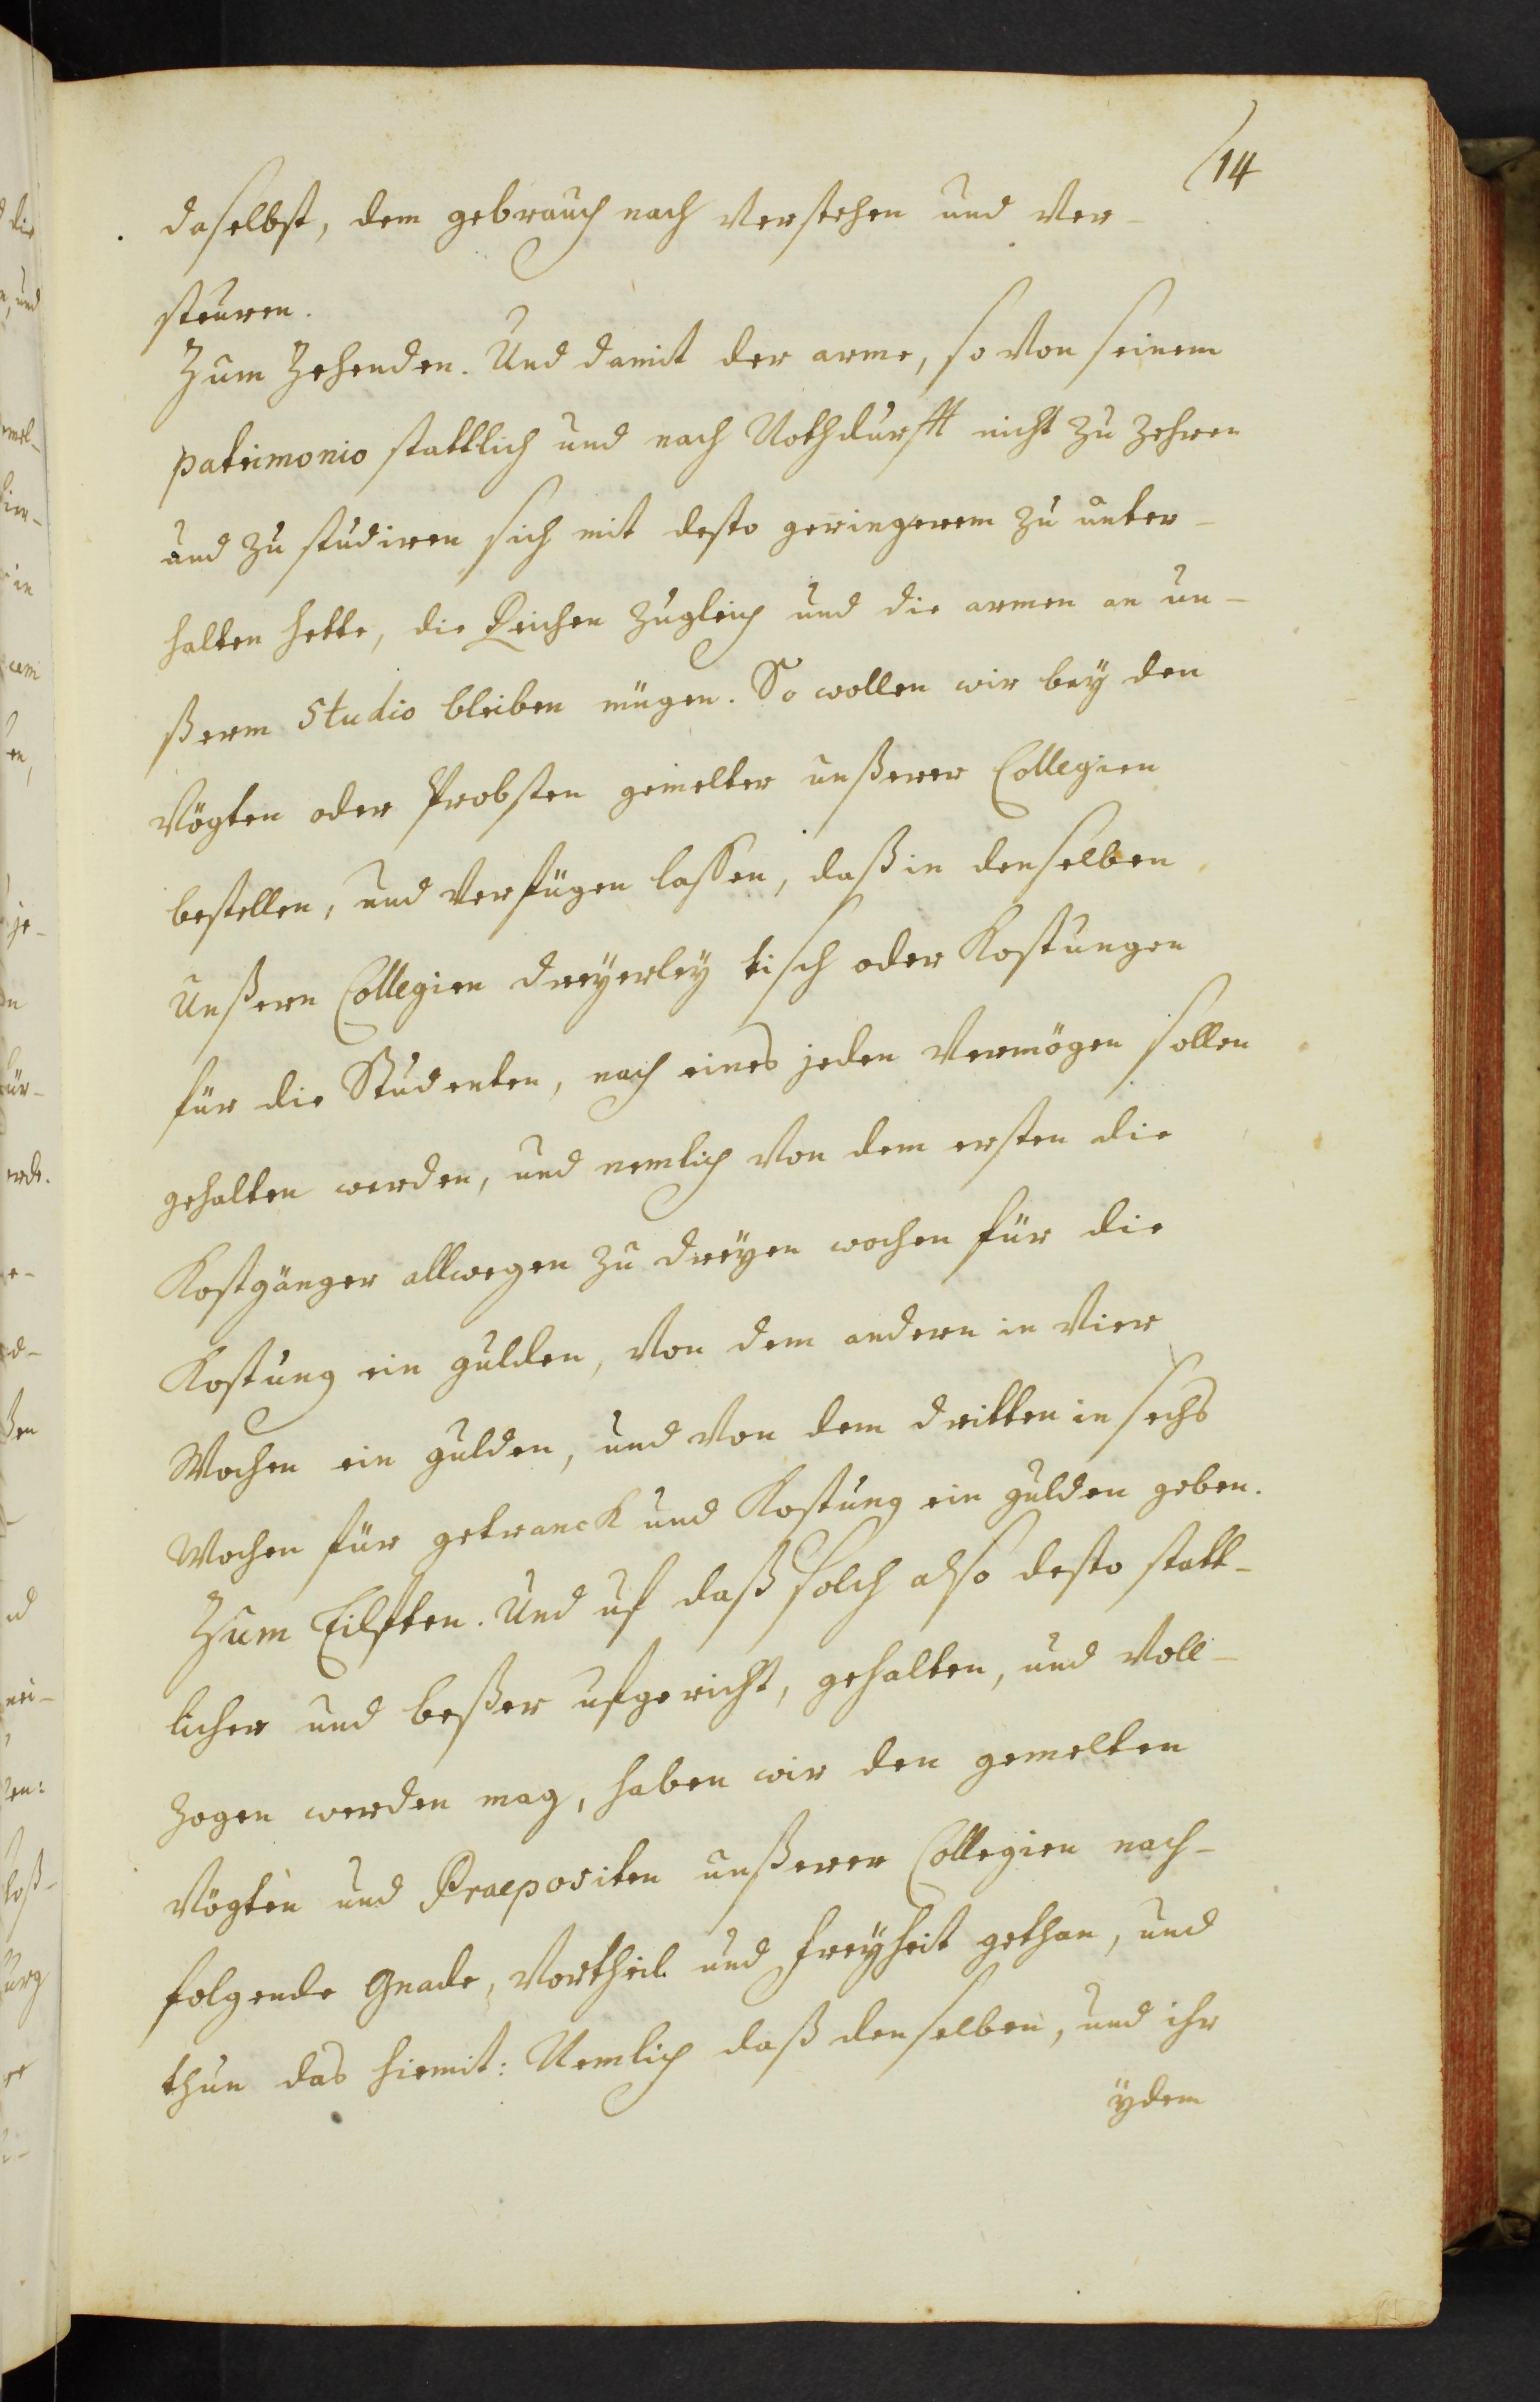 14
daselbst, dem gebrauch nach verstehen und ver-
steuren.
Zum Zehenden. Und damit der arme, so von seinem
patrimonio stattlich und nach Nothdurfft nicht zu zehren
und zu studiren sich mit desto geringerem zu unter-
halten hette, die Reichen zugleich und die armen an un-
ßerm Studio bleiben mügen. So wollen wir bey den
Vögten oder Probsten gemelter unßerer Collegien
bestellen, und verfügen lassen, daß in denselben
Unßern Collegien dreyerley tisch oder Kostungen
für die Studenten, nach eines jeden Vermögen sollen
gehalten werden, und nemlich von dem ersten die
Kostgänger allwegen zu dreyen wochen für die
Kostung ein gulden, von dem andern in vier
Wochen ein gulden, und von dem dritten in sechs
Wochen für getranck und Kostung ein gulden geben.
Zum Eilften. Und uf daß solch also desto statt-
licher und beßer ufgericht, gehalten, und voll-
zogen werden mag, haben wir den gemelten
Vögten und Praepositen unßerer Collegien nach-
folgende Gnade, Vortheil und freyheit gethan, und
thun das hiemit: Nemlich daß denselben, und ihr
ydem